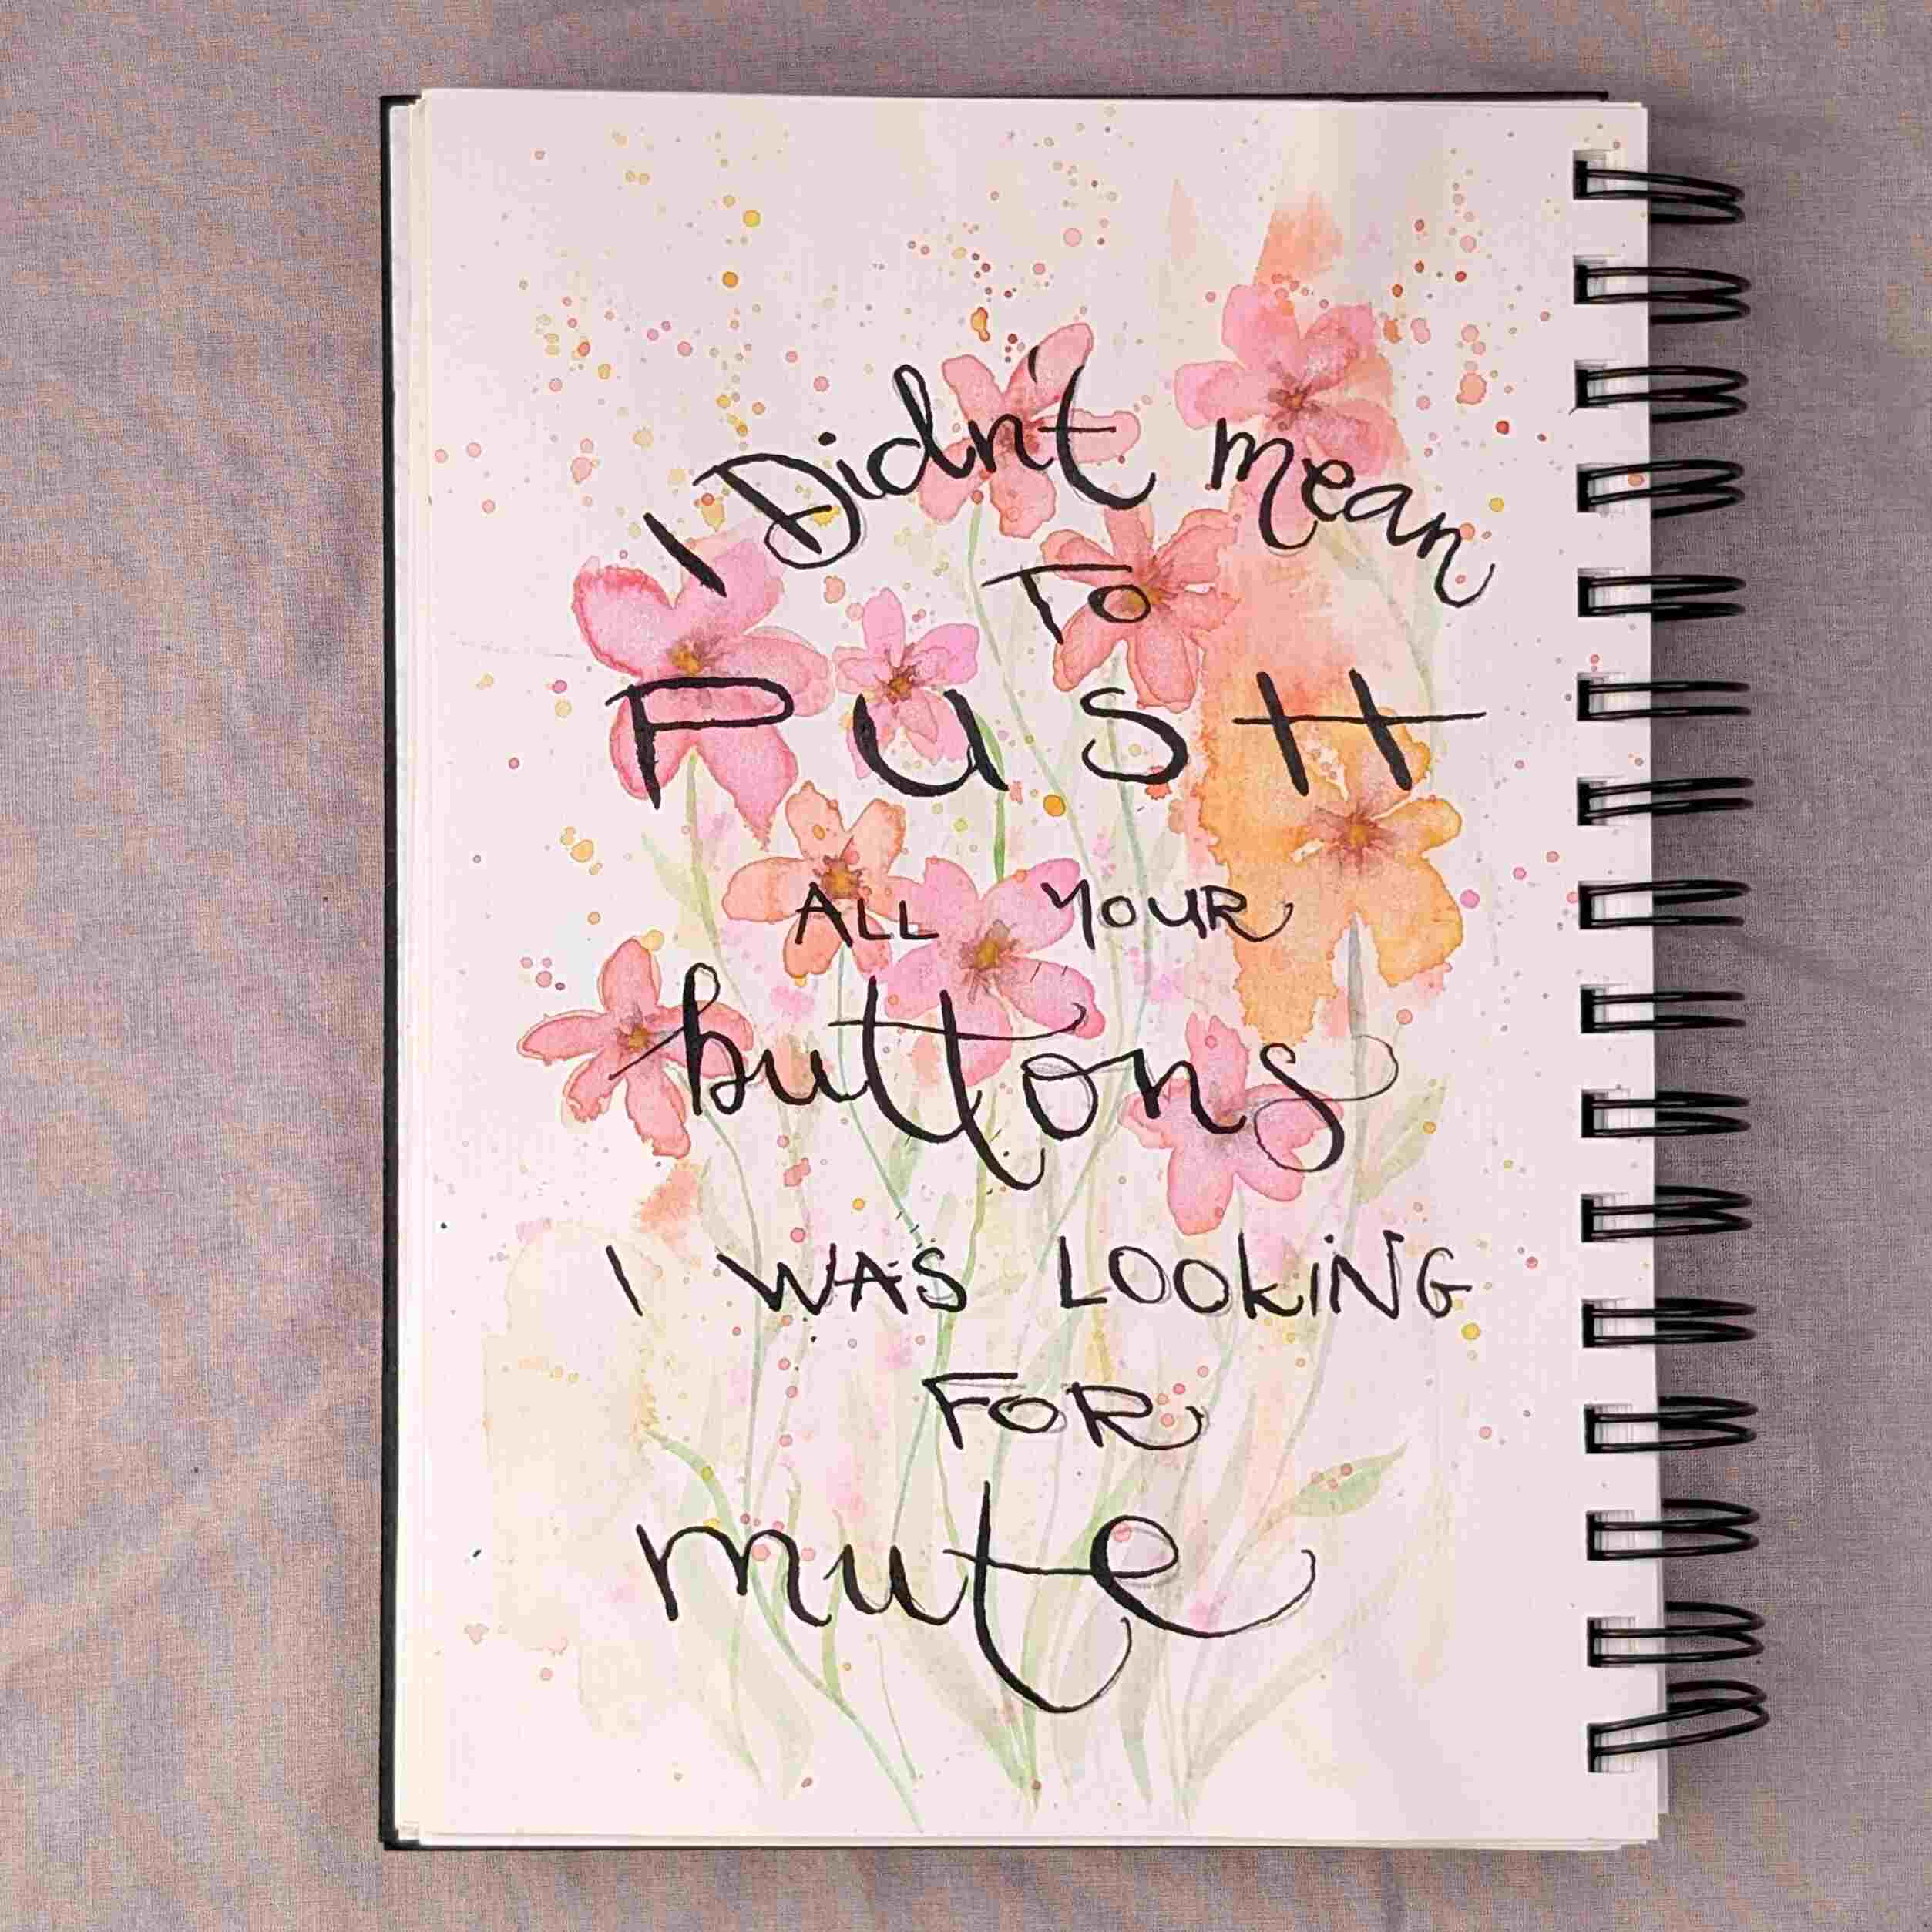 I Didn't mean
TO
PUSH
ALL YOUR
buttons
I WAS LOOKING
FOR
mute